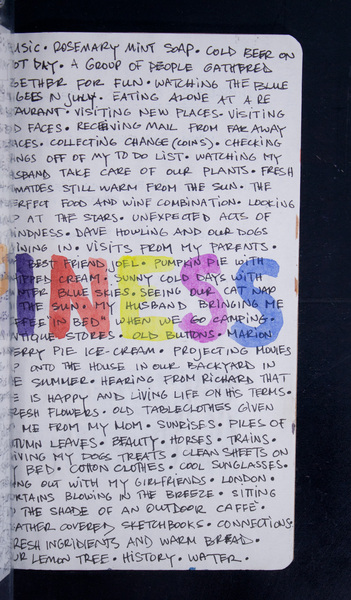 USIC · ROSEMARY MINT SOAP · COLD BEER ON
OT DAY · A GROUP OF PEOPLE GATHERED
GETHER FOR FUN · WATCHING THE BLUE
GEES N JULY · EATING ALONE AT A RE
AURANT · VISITING NEW PLACES · VISITING
D FACES · RECEIVING MAIL FROM FAR AWAY
ACES · COLLECTING CHANGE (COINS) · CHECKING
INGS OFF OF MY TO DO LIST · WATCHING MY
SBAND TAKE CARE OF OUR PLANTS · FRESH
MATOES STILL WARM FROM THE SUN · THE
ERFECT FOOD AND WINE COMBINATION · LOOKING
P AT THE STARS · UNEXPECTED ACTS OF
INDNESS · DAVE HOWLING AND OUR DOGS
INING IN · VISITS FROM MY PARENTS ·
BEST FRIEND JOEL · PUMPKIN PIE WITH
IPPED CREAM · SUNNY COLD DAYS WITH
NTER BLUE SKIES · SEEING OUR CAT NAP
THE SUN · HUSBAND BRINGING ME
FFEE "IN BED" WHEN WE GO CAMPING ·
NTIQUE STORES · OLD BUTTONS · MARION
ERRY PIE ICE-CREAM · PROJECTING MOVIES
P ONTO THE HOUSE IN OUR BACKYARD IN
E SUMMER · HEARING FROM RICHARD THAT
E IS HAPPY AND LIVING LIFE ON HIS TERMS ·
RESH FLOWERS · OLD TABLECLOTHES GIVEN
ME FROM MY MOM · SUNRISES · PILES OF
TUMN LEAVES · BEAUTY · HORSES · TRAINS ·
IVING MY DOGS TREATS · CLEAN SHEETS ON
Y BED · COTTON CLOTHES · COOL SUNGLASSES ·
ING OUT WITH MY GIRLFRIENDS · LONDON ·
RTAINS BLOWING IN THE BREEZE · SITTING
THE SHADE OF AN OUTDOOR CAFFÈ ·
EATHER COVERED SKETCHBOOKS · CONNECTIONS
RESH INGRIDIENTS AND WARM BREAD ·
UR LEMON TREE · HISTORY · WATER ·
NESS